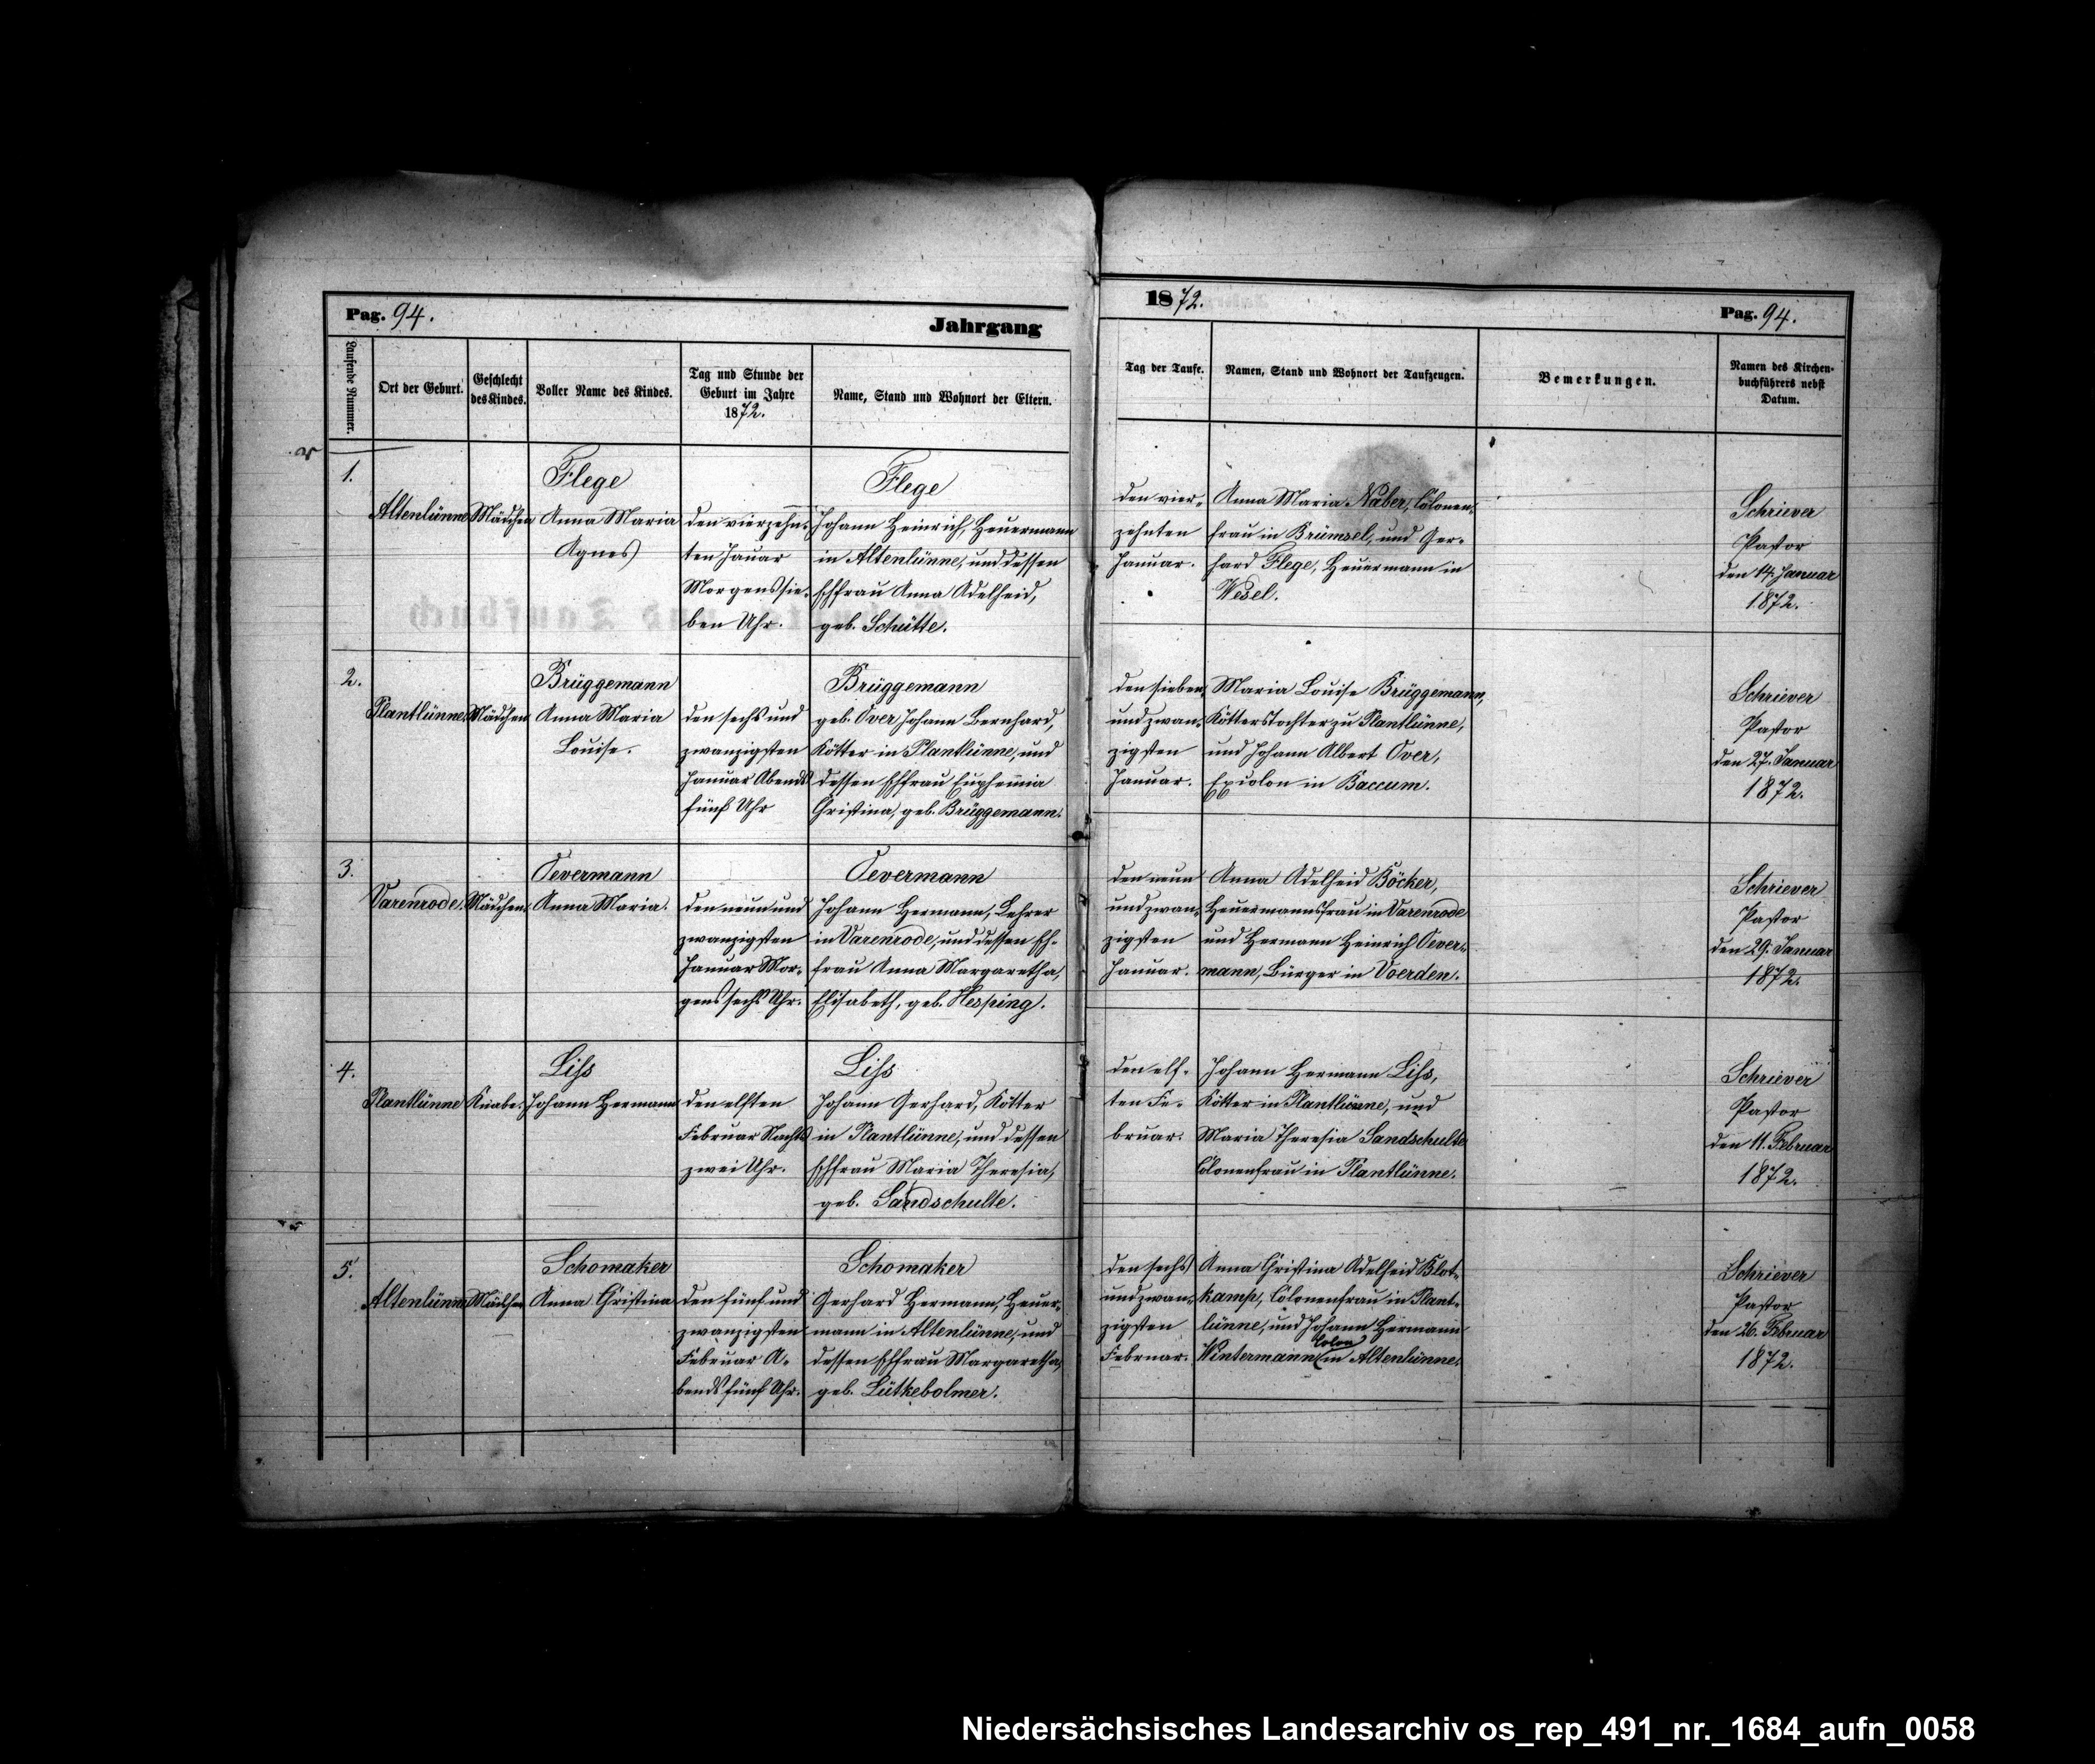 Pag. 94.
Jahrgang
1872.
Pag. 94.
Laufende Nummer.
Ort der Geburt.
Geschlecht
des Kindes.
Voller Name des Kindes.
Tag und Stunde der
Geburt im Jahre
1872.
Name, Stand und Wohnort der Eltern.
Tag der Taufe.
Namen, Stand und Wohnort der Taufzeugen.
Bemerkungen.
Namen des Kirchen-
buchführers nebst
Datum.
1.
Altenlünne
Mädchen
Flege
Anna Maria
Agnes
den vierzehn-
ten Januar
Morgens sie-
ben Uhr.
Flege
Johann Heinrich, Heuermann
in Altenlünne, und dessen
Ehfrau Anna Adelheid,
geb. Schütte.
den vier-
zehnten
Januar.
Anna Maria Naber, Colonen-
frau in Brümsel, und Ger-
hard Flege, Heuermann in
Wesel.
Schriever
Pastor
den 14. Januar
1872.
2.
Plantlünne
Mädchen
Brüggemann
Anna Maria
Louise.
den sechs und
zwanzigsten
Januar Abends
fünf Uhr
Brüggemann
geb. Over Johann Bernhard,
Kötter in Plantlünne, und
dessen Ehfrau Euphemia
Christina, geb. Brüggemann.
den sieben
und zwan-
zigsten
Januar.
Maria Louise Brüggemann,
Kötterstochter zu Plantlünne,
und Johann Albert Over,
in Baccum.
Schriever
Pastor
den 27. Januar
1872.
3.
Varenrode.
Mädchen.
Oevermann
Anna Maria.
den neun und
zwanzigsten
Januar Mor-
gens sechs Uhr.
Oevermann
Johann Hermann, Lehrer
in Varenrode, und dessen Eh-
frau Anna Margaretha,
Elisabeth, geb. Hesping.
den neun
und zwan-
zigsten
Januar.
Anna Adelheid Böcker,
Heuermannsfrau in Varenrode
und Hermann Heinrich Oever-
mann, Bürger in Voerden.
Schriever
Pastor
den 29. Januar
1872.
4.
Plantlünne
Knabe.
Liss
Johann Hermann
den elften
Februar Nachts
zwei Uhr.
Liss
Johann Gerhard, Kötter
in Plantlünne, und dessen
Ehfrau Maria Theresia,
geb. Sandschulte.
den elf-
ten Fe-
bruar.
Johann Hermann Liss,
Kötter in Plantlünne, und
Maria Theresia Sandschulte
Colonenfrau in Plantlünne.
Schriever
Pastor
den 11. Februar
1872.
5.
Altenlünne
Mädchen
Schomaker
Anna Christina
den fünf und
zwanzigsten
Februar A-
bends fünf Uhr.
Schomaker
Gerhard Hermann, Heuer-
mann in Altenlünne, und
dessen Ehfrau Margaretha,
geb. Lütkebolmer.
den sechs
und zwan-
zigsten
Februar.
Anna Christina Adelheid Blot-
kamp, Colonenfrau in Plant-
lünne, und Johann Hermann
Colon
Wintermann in Altenlünne.
Schriever
Pastor
den 26. Februar
1872.
Niedersächsisches Landesarchiv os_rep_491_nr._1684_aufn_0058